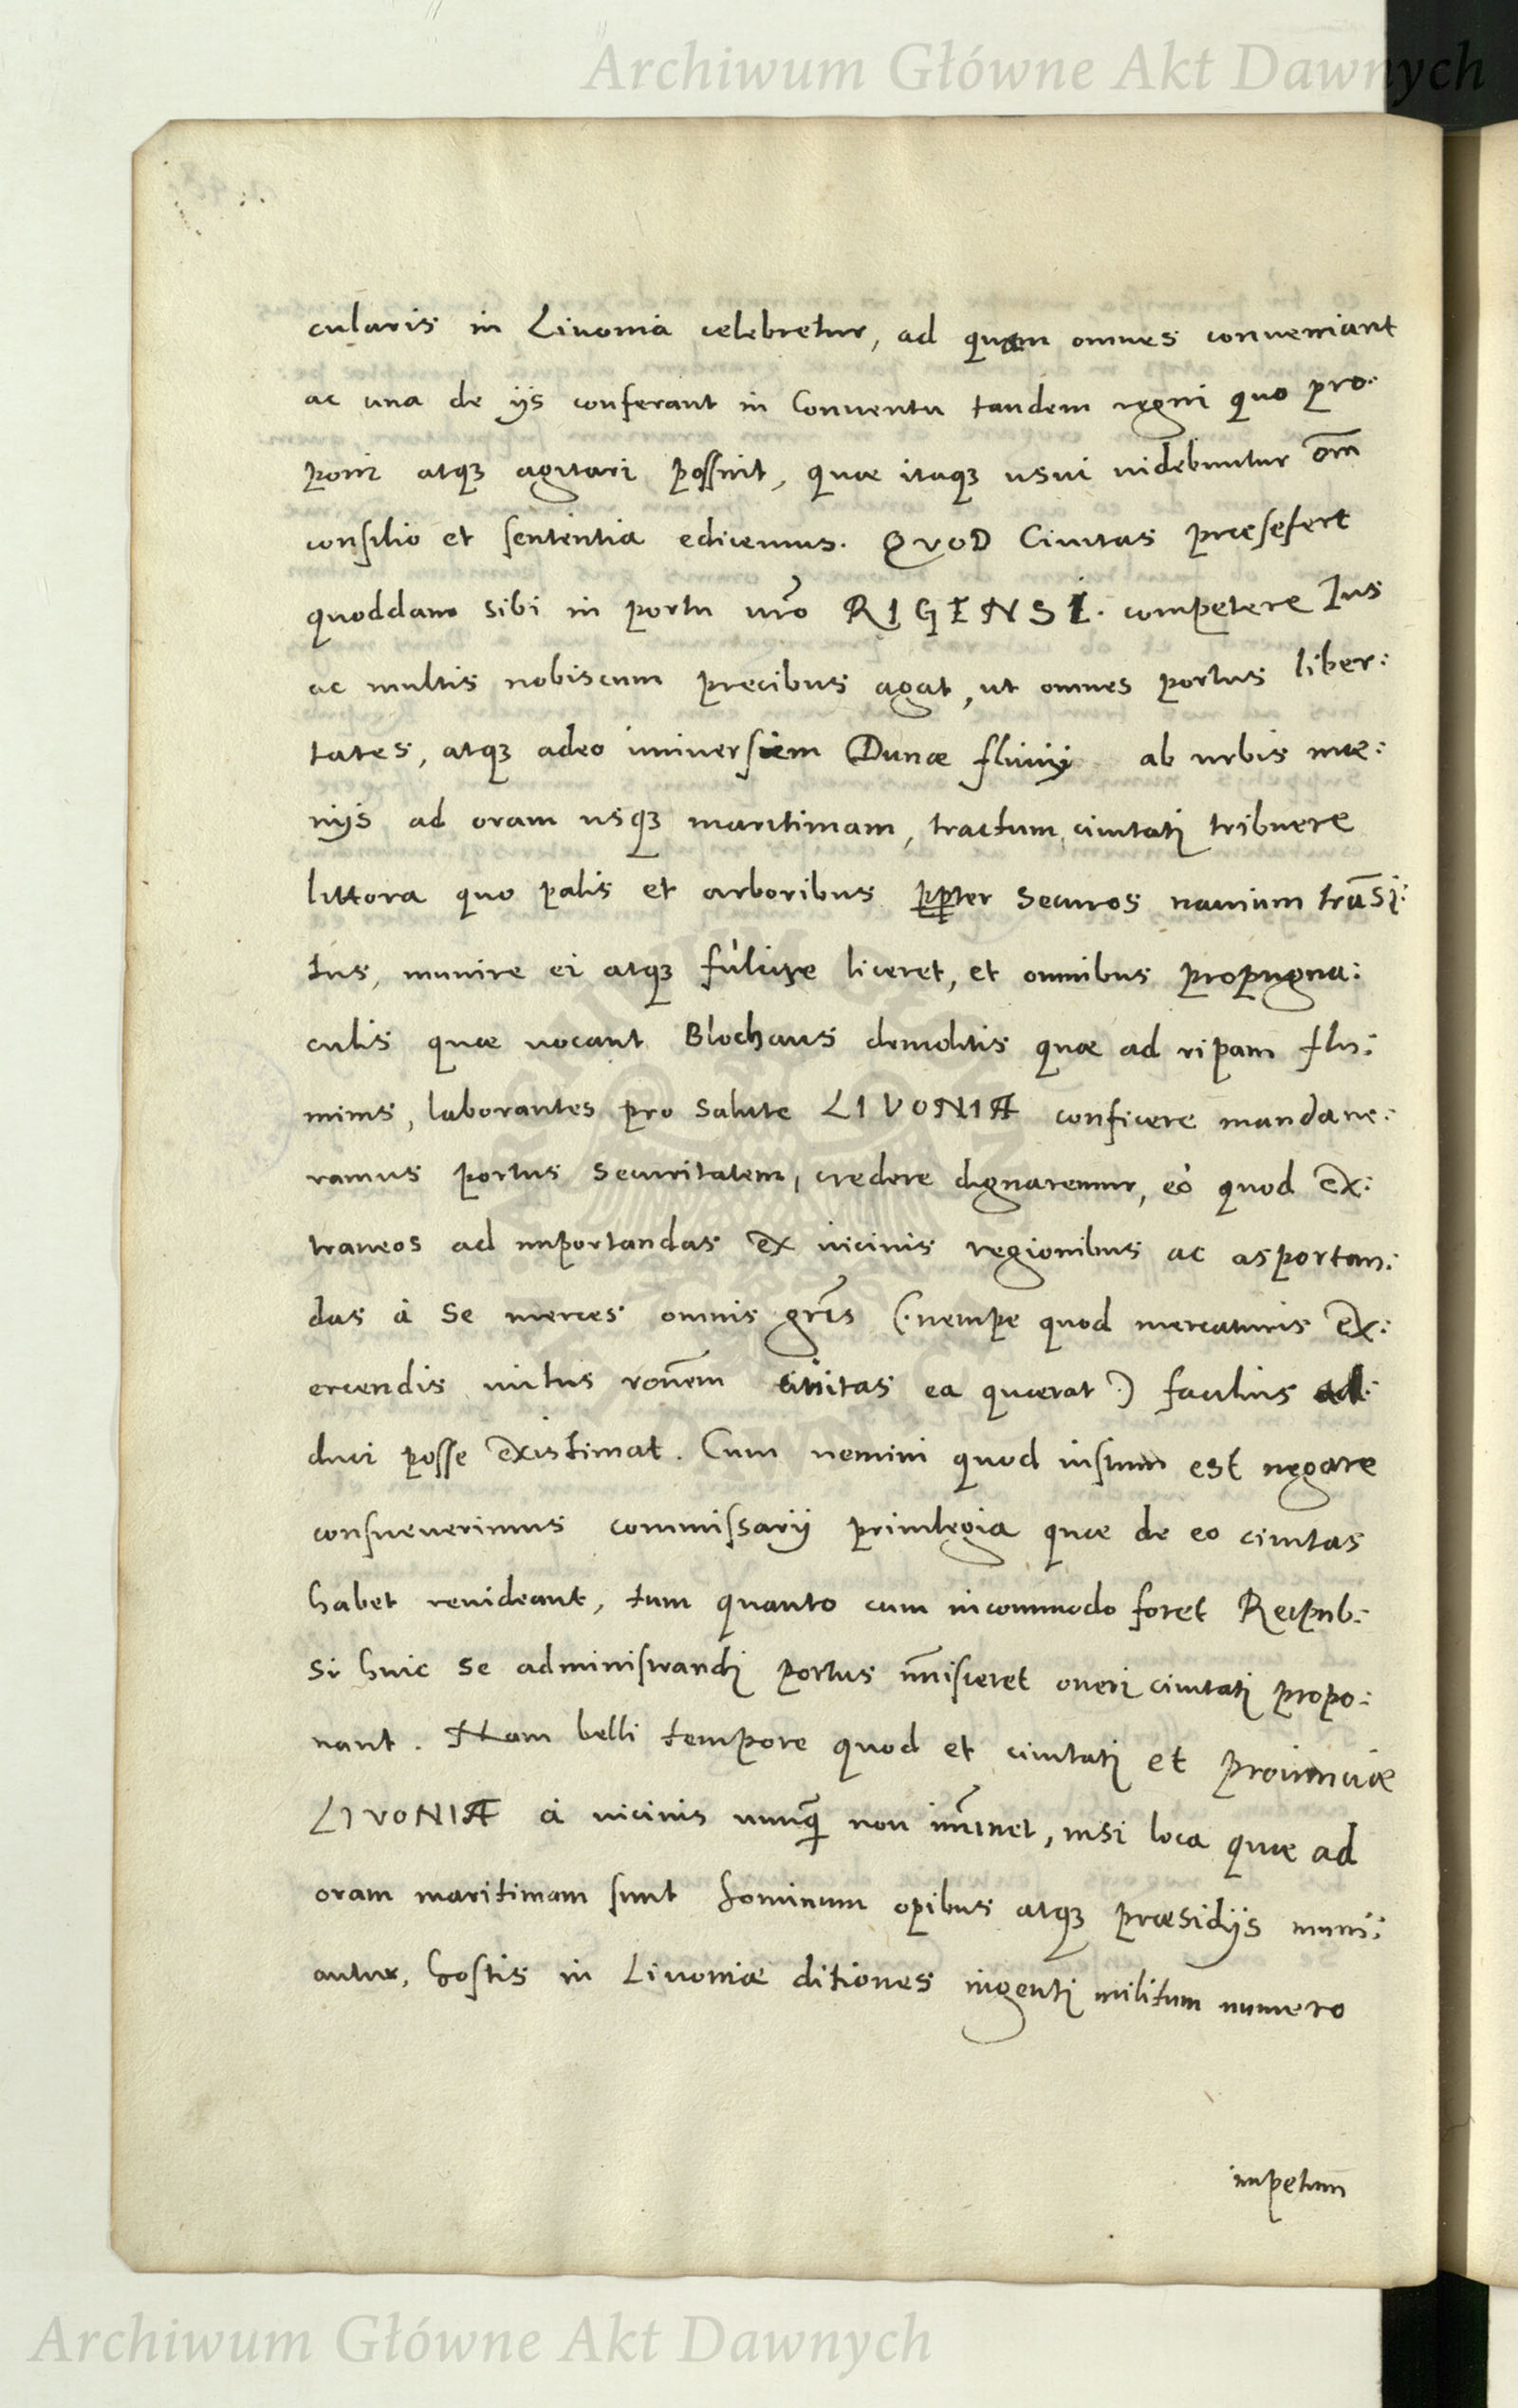 Archiwum Główne Akt Dawnych
cularis in Liuonia celebretur, ad quam omnes conueniant
ac una de ijs conferant in Conuentu tandem regni quo pro:
poni atqꝫ agitari possint, quæ itaqꝫ usui uidebuntur om̃
consilio et sententia edicemus. QVOD Ciuitas præsefert
quoddam sibi in portu nr̃o RIGENSI. competere Ius
ac multis nobiscum precibus agat, ut omnes portus liber:
tates, atqꝫ adeo uniuersum Dunæ fluuij ab urbis mæ:
nijs ad oram usqꝫ maritimam, tractum ciuitati tribuere
littora quo palis et arboribus ꝓpter securos nauium trãsi:
tus, munire ei atqꝫ fulcire liceret, et omnibus propugna:
culis quæ uocant Blochaus demolitis quæ ad ripam flu:
minis, laborantes pro salute LIVONIÆ conficere mandaue:
ramus portus securitatem, credere dignaremur, eò quod ex:
traneos ad importandas ex uicinis regionibus ac asportan:
das à se merces omnis gñis (:nempe quod mercaturis ex:
ercendis uictus ronem ciuitas ea quærat:) facilius ad:
duci posse existimat. Cum nemini quod iustum est negare
consueuerimus commissarij priuilegia quæ de eo ciuitas
habet reuideant, tum quanto cum incommodo foret Reipub:
si huic se administrandi portus im̃isceret oneri ciuitati propo:
nant. Nam belli tempore quod et ciuitati et prouinciæ
LIVONIÆ à uicinis nunq̃ non im̃inet, nisi loca quæ ad
oram maritimam sunt hominum opibus atqꝫ præsidijs muni:
antur, hostis in Liuoniæ ditiones ingenti militum numero
impetum
Archiwum Główne Akt Dawnych